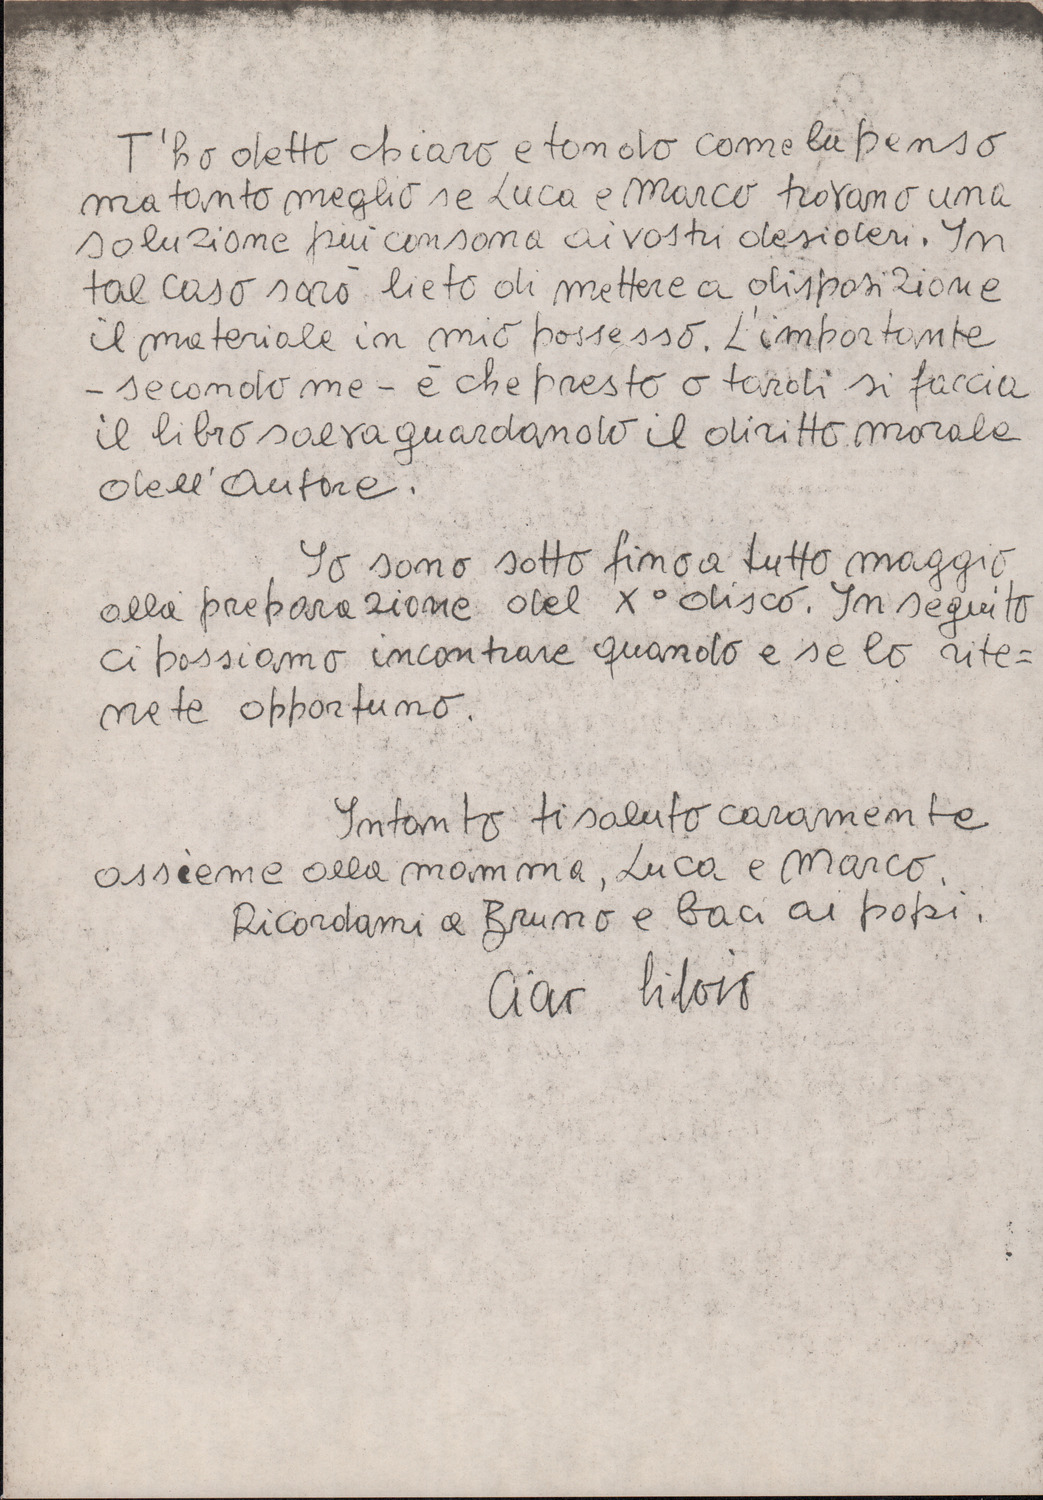 T'ho detto chiaro e tondo come la penso
ma tanto meglio se Luca e Marco trovano una
soluzione più consona ai vostri desideri. In
tal caso sarò lieto di mettere a disposizione
il materiale in mio possesso. L'importante
– secondo me – è che presto o tardi si faccia
il libro salvaguardando il diritto morale
dell'Autore.
Io sono sotto fino a tutto maggio
alla preparazione del X° disco. In seguito
ci possiamo incontrare quando e se lo rite=
nete opportuno.
Intanto ti saluto caramente
assieme alla mamma, Luca e Marco.
Ricordami a Bruno e baci ai popi.
Ciao Silvio